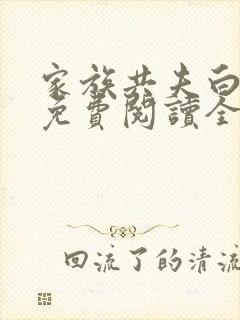 家族共夫白
免費閱讀全
回流了的清流